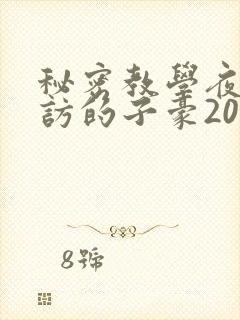 秘密教學夜
訪的子豪20
8號